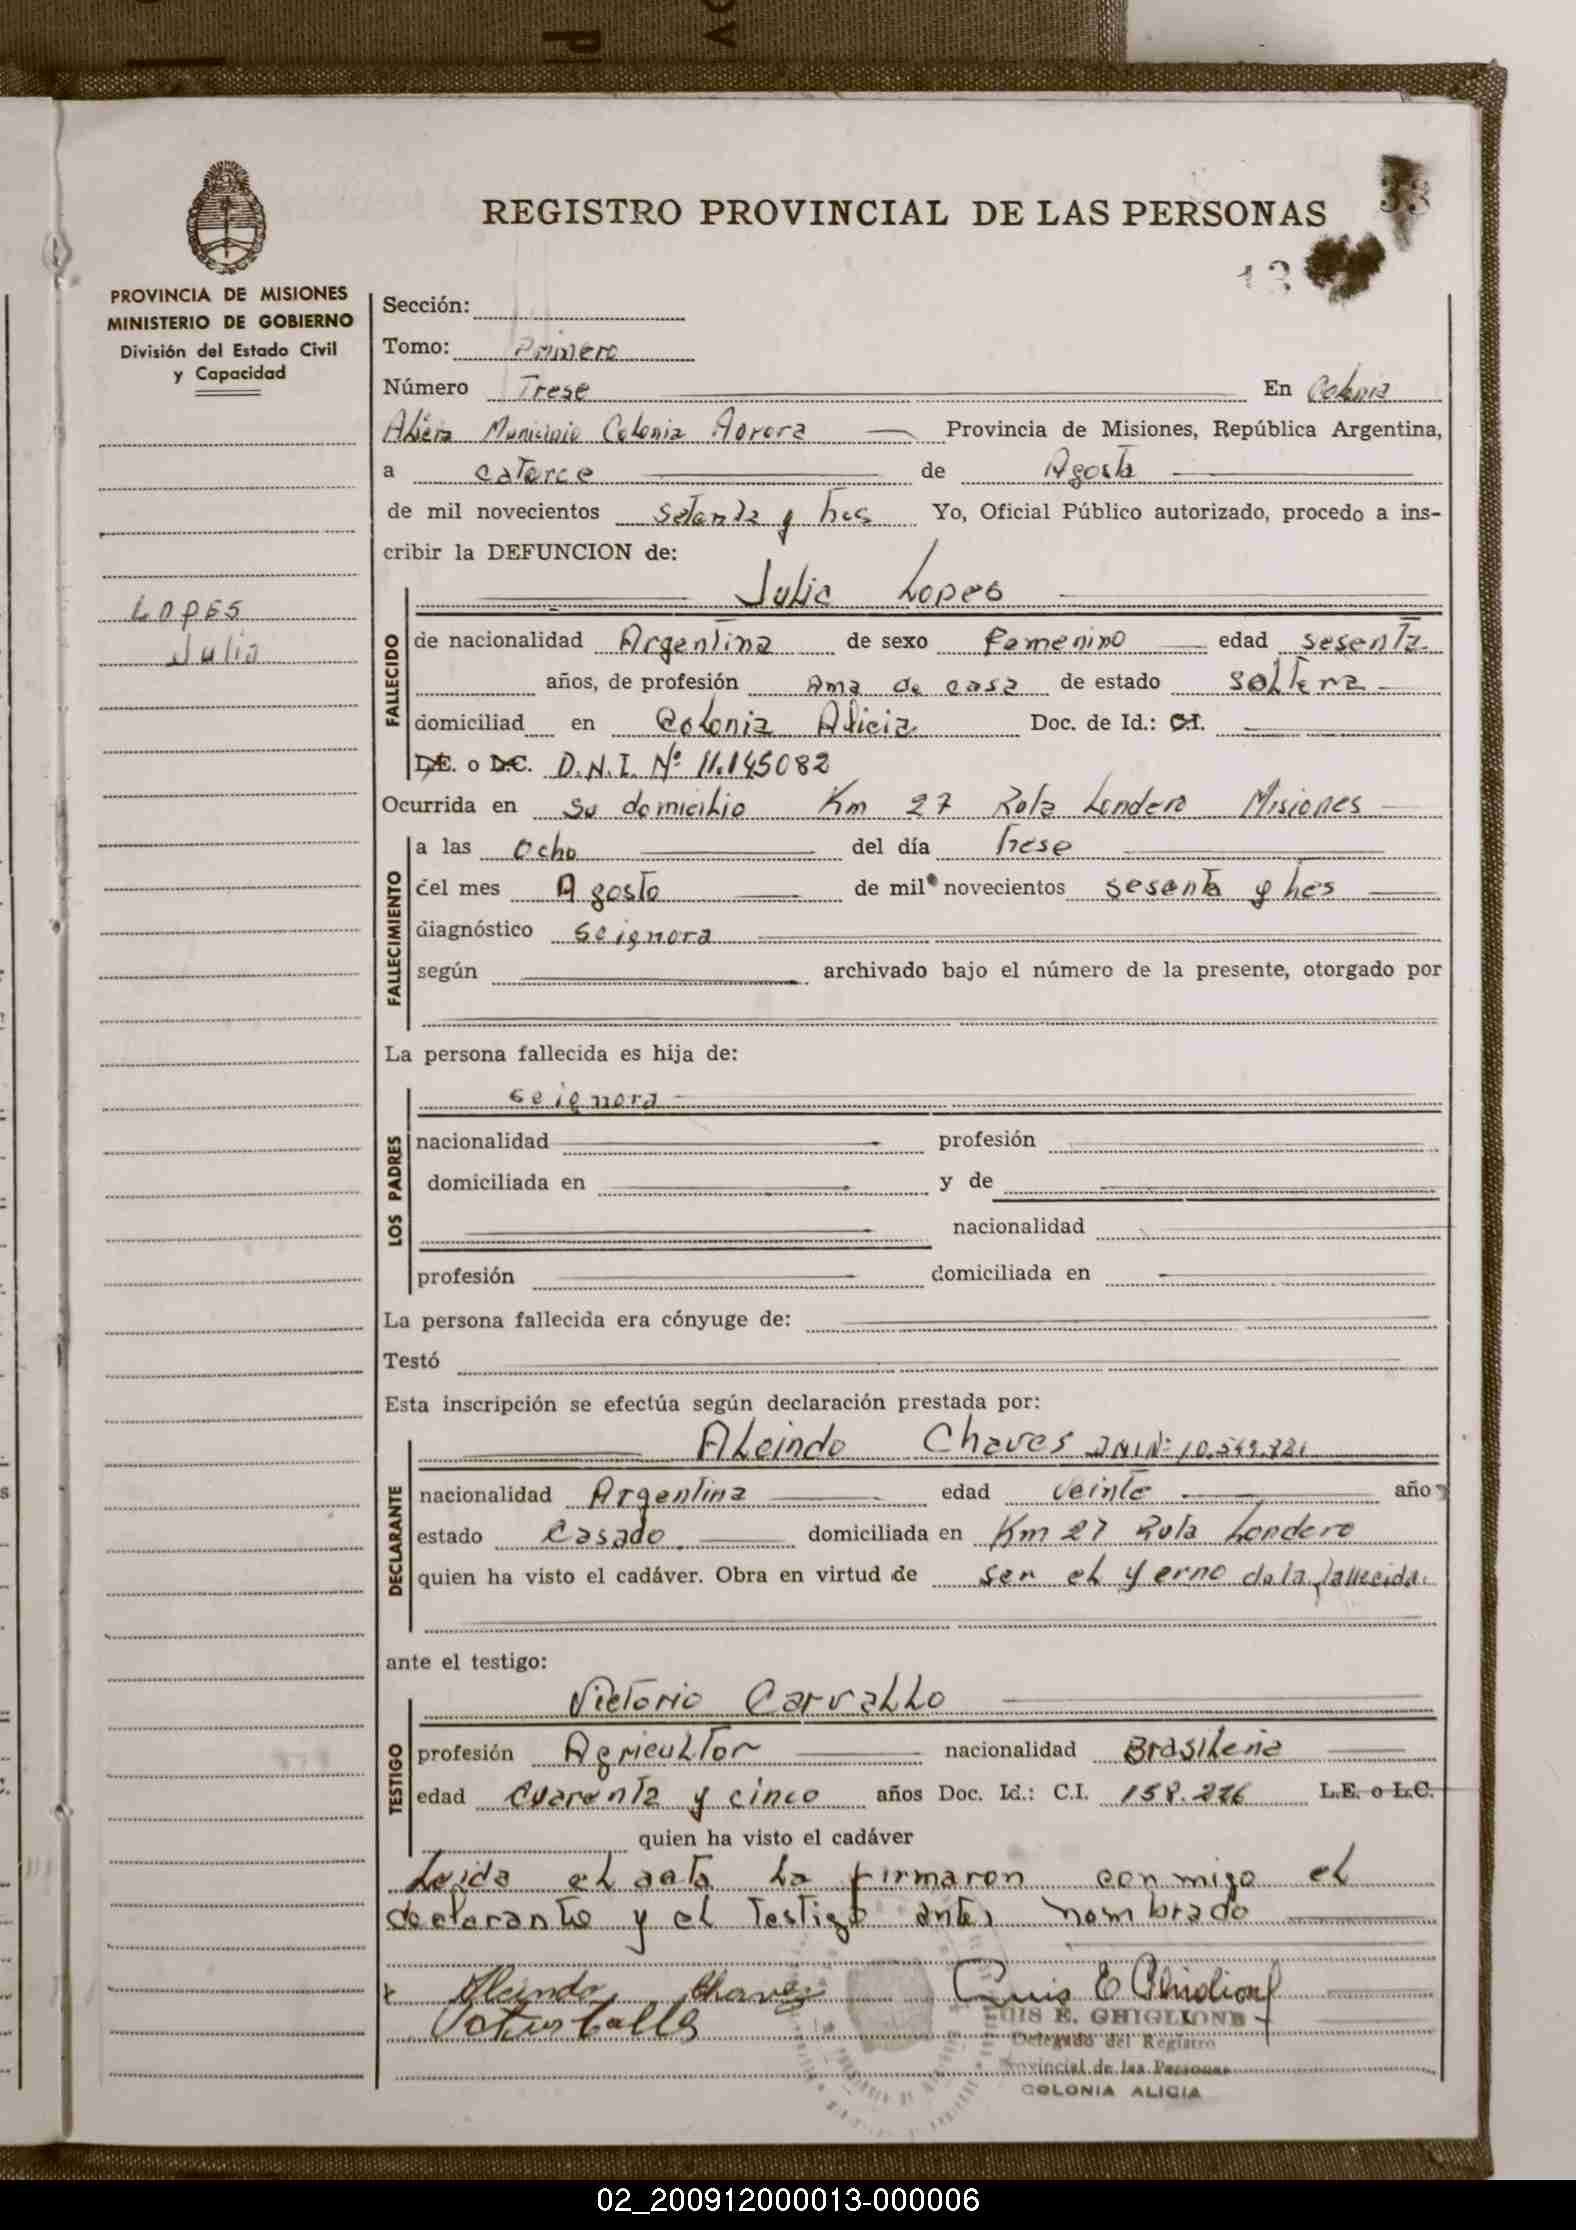 REGISTRO PROVINCIAL DE LAS PERSONAS
13
PROVINCIA DE MISIONES
MINISTERIO DE GOBIERNO
División del Estado Civil
y Capacidad
LOPES
Julia
Sección:
Tomo: Primero
Número Trese En Colonia
Alicia Municipio Colonia Aorora Provincia de Misiones, República Argentina,
a catorce de Agosto
de mil novecientos setenta y tres Yo, Oficial Público autorizado, procedo a ins-
cribir la DEFUNCION de:
Julia Lopes
FALLECIDO
de nacionalidad Argentina de sexo femenino edad sesenta
años, de profesión Ama de casa de estado soltera
domiciliad en Colonia Alicia Doc. de Id.: C.I.
L.E. o L.C. D.N.I. Nº 11.145082
Ocurrida en su domicilio Km 27 Rota Londero Misiones
FALLECIMIENTO
a las ocho del día trese
del mes Agosto de mil novecientos sesenta y tres
diagnóstico seignora
según archivado bajo el número de la presente, otorgado por
La persona fallecida es hija de:
LOS PADRES
seignora
nacionalidad profesión
domiciliada en y de
nacionalidad
profesión domiciliada en
La persona fallecida era cónyuge de:
Testó
Esta inscripción se efectúa según declaración prestada por:
DECLARANTE
Alcindo Chaves
nacionalidad Argentina edad veinte años
estado Casado domiciliada en Km 27 Ruta Londero
quien ha visto el cadáver. Obra en virtud de ser el yerno de la fallecida.
ante el testigo:
TESTIGO
Victorio Carvallo
profesión Agricultor nacionalidad Brasileña
edad cuarenta y cinco años Doc. Id.: C.I. 158.226 L.E. o L.C.
quien ha visto el cadáver
Leida el acta la firmaron conmigo el
declarante y el testigo antes nombrado
Alcindo Chavez
Luis E Ghiglione
LUIS E. GHIGLIONE
Delegado del Registro
Provincial de las Personas
COLONIA ALICIA
02_200912000013-000006